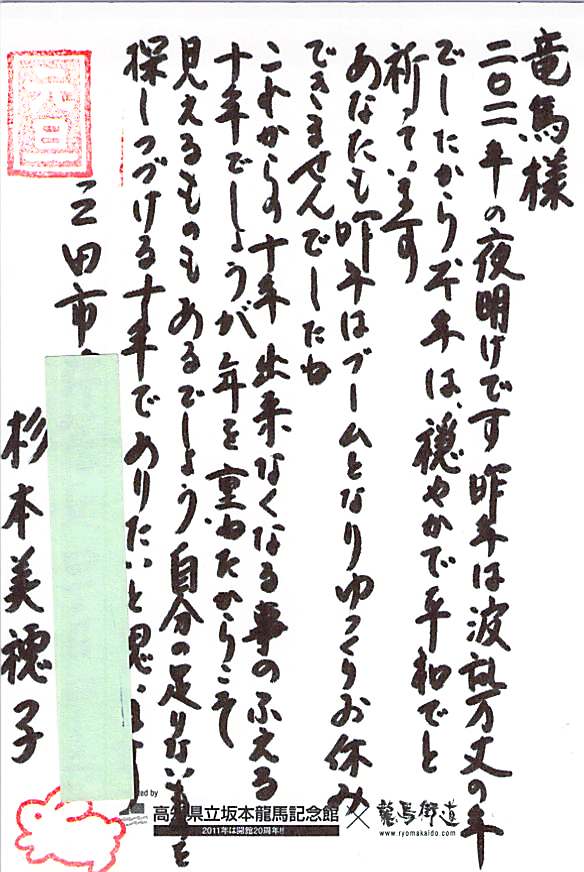 竜馬様
二〇一一年の夜明けです昨年は波乱万丈の年
でしたから本年は、穏やかで平和でと
祈っています
あなたも昨年はブームとなりゆっくりお休み
できませんでしたね
これからの十年出来なくなる事のふえる
十年でしょうが年を重ねたからこそ
見えるものもあるでしょう自分の足りない事を
探しつづける十年でありたいと思います
三田市
杉本美穂子
元旦
高知県立坂本龍馬記念館 × 龍馬街道
2011年は開館20周年!!
www.ryomakaido.com